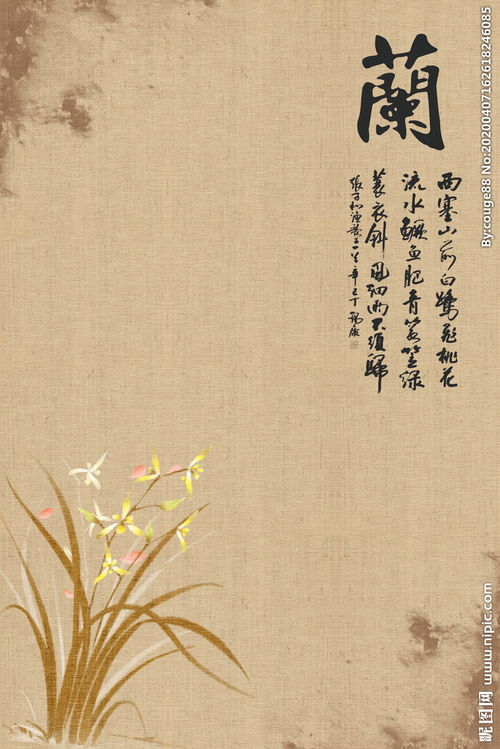 蘭
西塞山前白鷺飛桃花
流水鱖魚肥青箬笠綠
蓑衣斜風細雨不須歸
By:couge88 No:20200407162618246085
昵图网 www.nipic.com